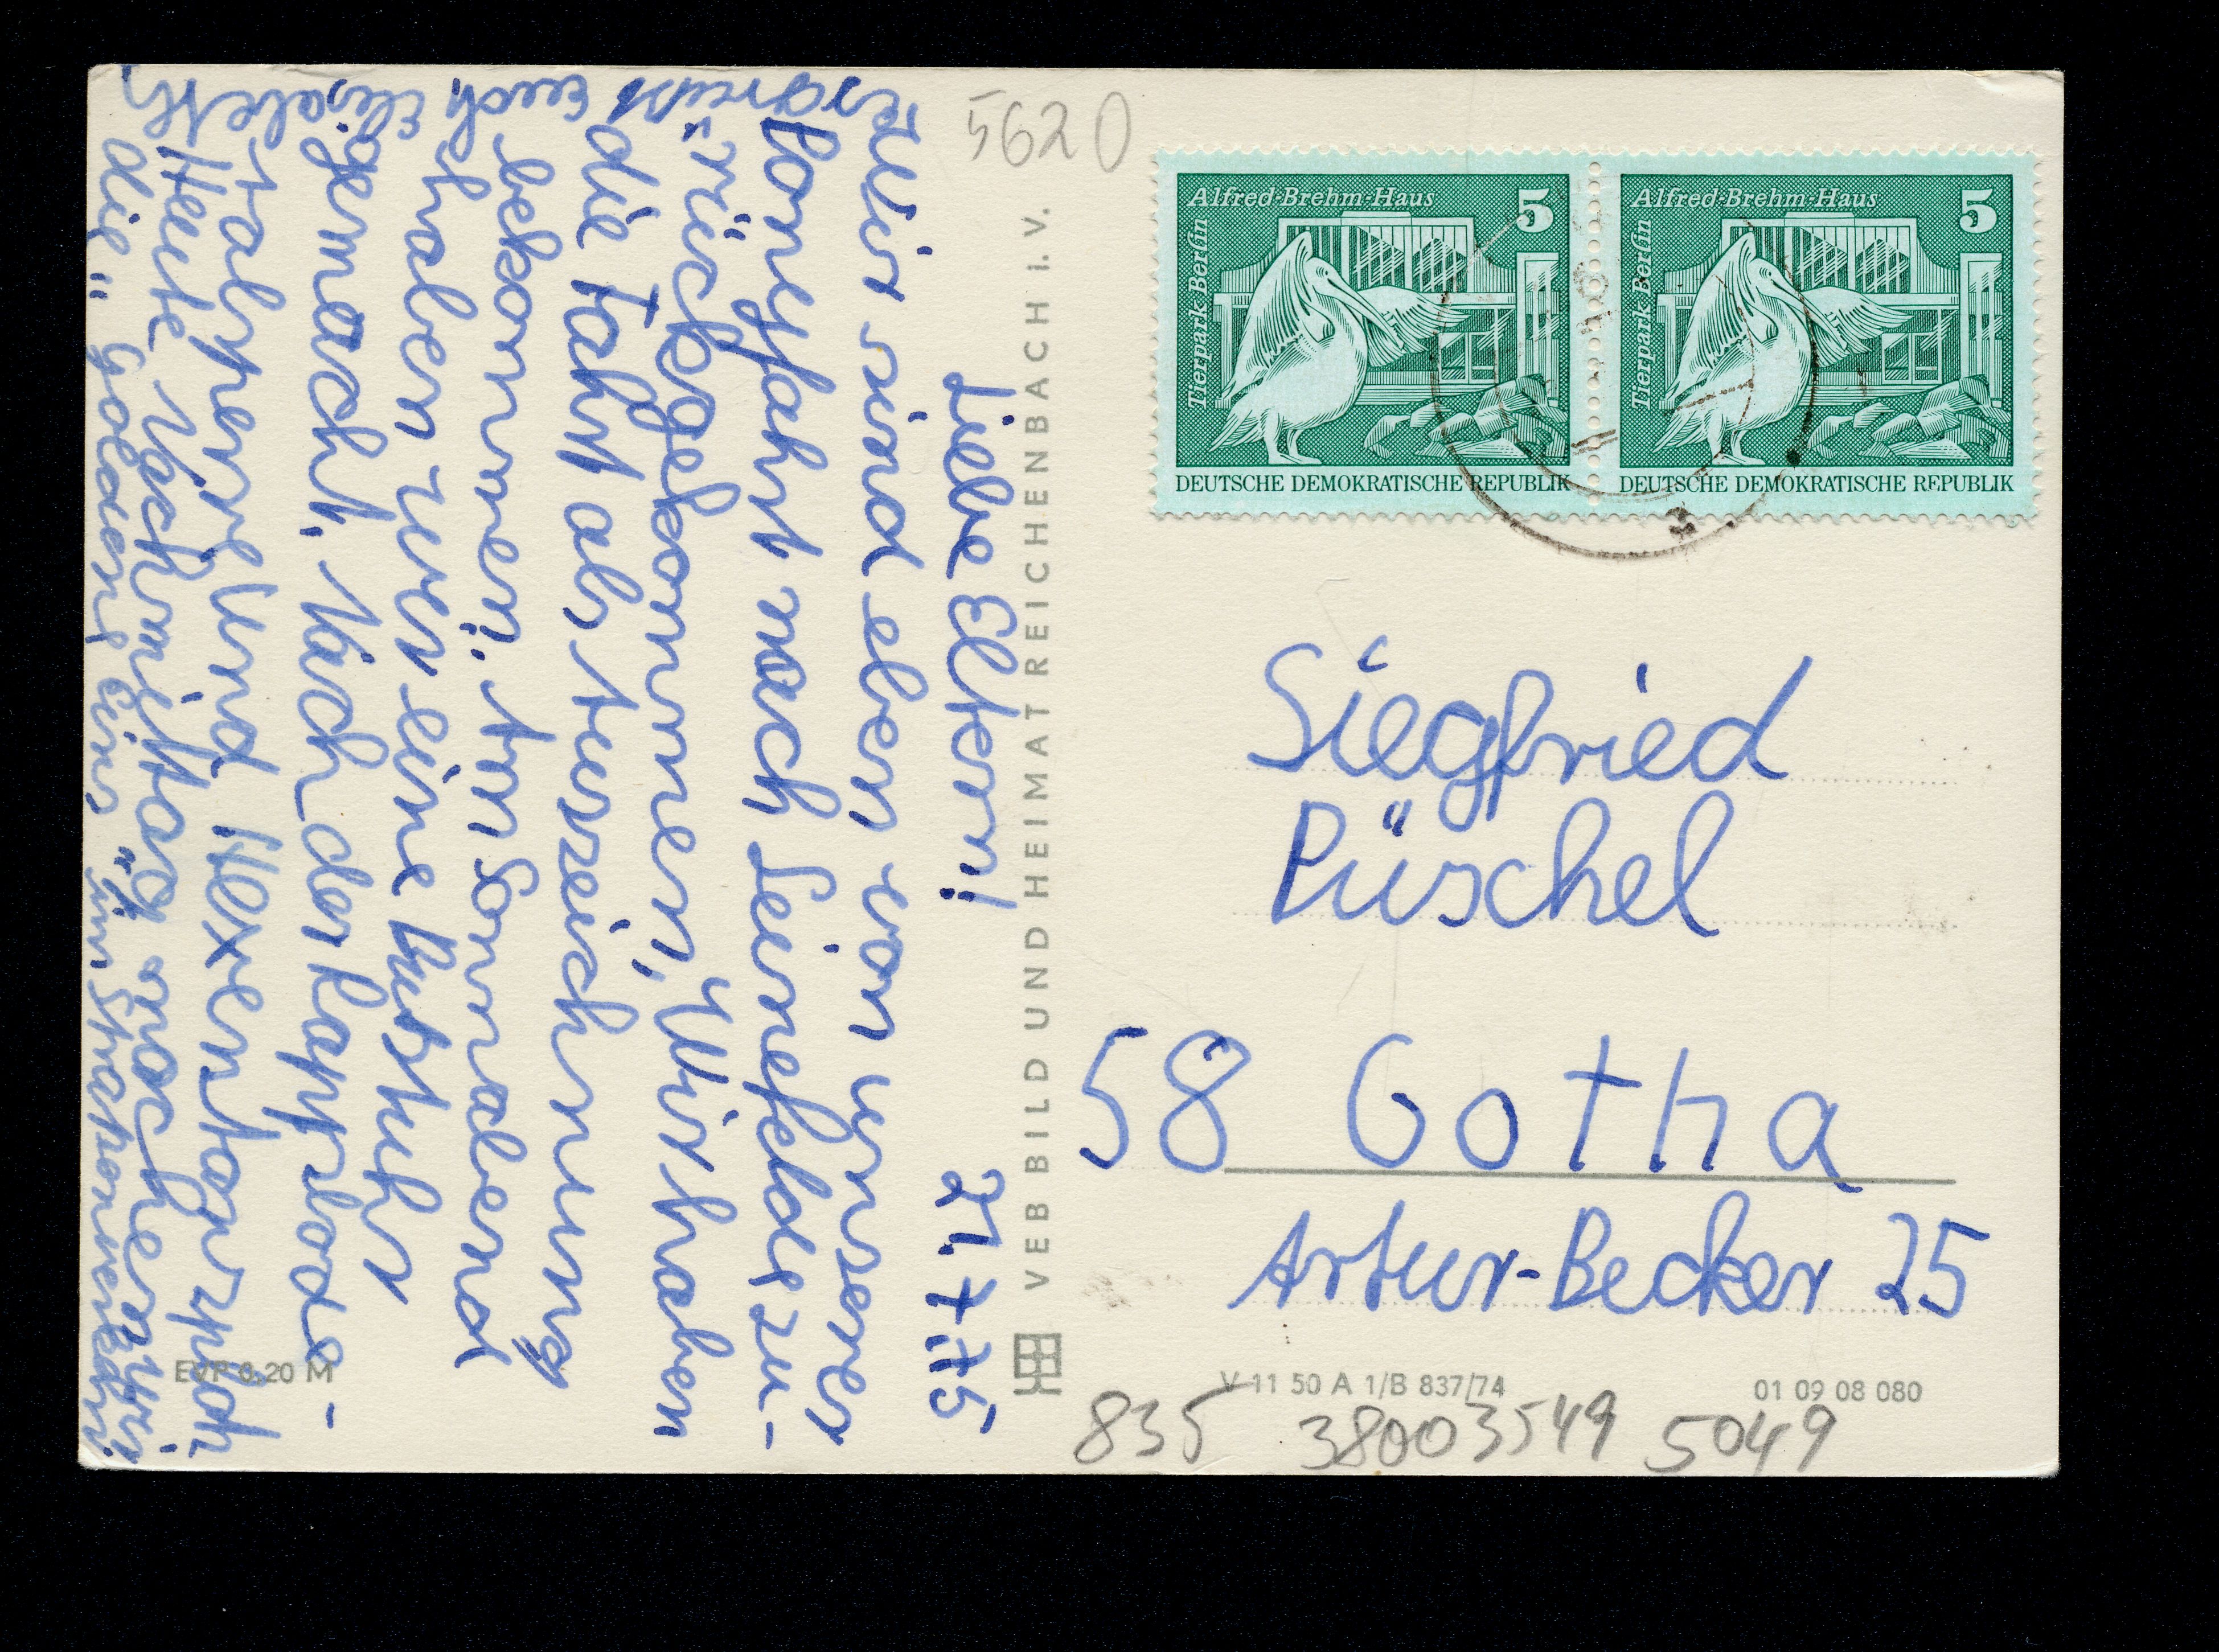 Liebe Eltern! 21.7.75
Wir sind eben von unserer
Tonrfahrt nach Leinefelde zu-
rückgekommen. Wir haben
die Fahrt als Auszeichnung
bekommen. Am Sonnabend
haben wir eine Putstuhr
gemacht. Nach der Rappbode-
talsperre und Hexentanzplatz.
Heute Nachmittag machen wir
die "Goldene Eins" im
Es grüßt Euch
Euch Elisabeth
VEB BILD UND HEIMAT REICHENBACH I. V.
EVP 0,20 M
5620
Alfred-Brehm-Haus 5
Tierpark Berlin
DEUTSCHE DEMOKRATISCHE REPUBLIK
Alfred-Brehm-Haus 5
Tierpark Berlin
DEUTSCHE DEMOKRATISCHE REPUBLIK
Siegfried
Püschel
58 Gotha
Artur-Becker 25
V 11 50 A 1/B 837/74 01 09 08 080
835 38003549 5049